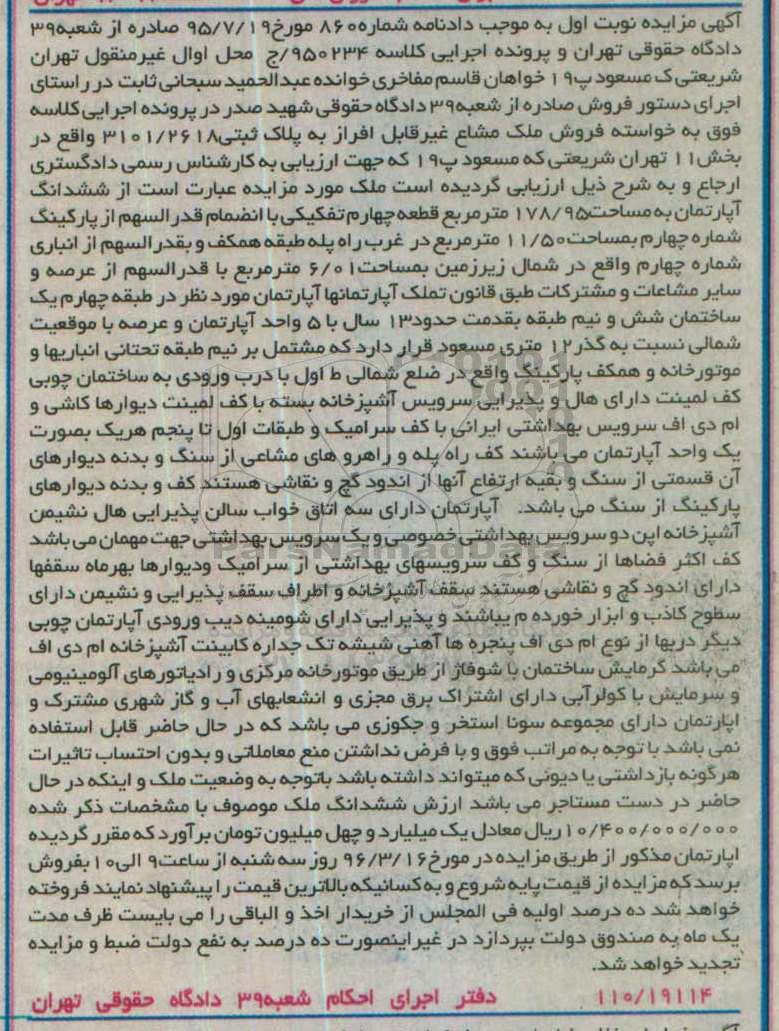 آگهی مزایده نوبت اول به موجب دادنامه شماره۸۶۰ مورخ۹۵/۷/۱۹ صادره از شعبه۳۹
دادگاه حقوقی تهران و پرونده اجرایی کلاسه ۹۵۰۲۳۴/ج محل اوال غیرمنقول تهران
شریعتی ک مسعود پ۱۹ خواهان قاسم مفاخری خوانده عبدالحمید سبحانی ثابت در راستای
اجرای دستور فروش صادره از شعبه۳۹ دادگاه حقوقی شهید صدر در پرونده اجرایی کلاسه
فوق به خواسته فروش ملک مشاع غیرقابل افراز به پلاک ثبتی۳۱۰۱/۲۶۱۸ واقع در
بخش۱۱ تهران شریعتی که مسعود پ۱۹ که جهت ارزیابی به کارشناس رسمی دادگستری
ارجاع و به شرح ذیل ارزیابی گردیده است ملک مورد مزایده عبارت است از ششدانگ
آپارتمان به مساحت۱۷۸/۹۵ مترمربع قطعه چهارم تفکیکی با انضمام قدرالسهم از پارکینگ
شماره چهارم بمساحت۱۱/۵۰ مترمربع در غرب راه پله طبقه همکف و بقدرالسهم از انباری
شماره چهارم واقع در شمال زیرزمین بمساحت۶/۰۱ مترمربع با قدرالسهم از عرصه و
سایر مشاعات و مشترکات طبق قانون تملک آپارتمانها آپارتمان مورد نظر در طبقه چهارم یک
ساختمان شش و نیم طبقه بقدمت حدود۱۳ سال با ۵ واحد آپارتمان و عرصه با موقعیت
شمالی نسبت به گذر۱۲ متری مسعود قرار دارد که مشتمل بر نیم طبقه تحتانی انباریها و
موتورخانه و همکف پارکینگ واقع در ضلع شمالی ط اول با درب ورودی به ساختمان چوبی
کف لمینت دارای هال و پذیرایی سرویس آشپزخانه بسته با کف لمینت دیوارها کاشی و
ام دی اف سرویس بهداشتی ایرانی با کف سرامیک و طبقات اول تا پنجم هریک بصورت
یک واحد آپارتمان می باشند کف راه پله و راهرو های مشاعی از سنگ و بدنه دیوارهای
آن قسمتی از سنگ و بقیه ارتفاع آنها از اندود گچ و نقاشی هستند کف و بدنه دیوارهای
پارکینگ از سنگ می باشد. آپارتمان دارای سه اتاق خواب سالن پذیرایی هال نشیمن
آشپزخانه اپن دو سرویس بهداشتی خصوصی و یک سرویس بهداشتی جهت مهمان می باشد
کف اکثر فضاها از سنگ و کف سرویسهای بهداشتی از سرامیک ودیوارها بهرماه سقفها
دارای اندود گچ و نقاشی هستند سقف آشپزخانه و اطراف سقف پذیرایی و نشیمن دارای
سطوح کاذب و ابزار خورده م یباشند و پذیرایی دارای شومینه دیب ورودی آپارتمان چوبی
دیگر دربها از نوع ام دی اف پنجره ها آهنی شیشه تک جداره کابینت آشپزخانه ام دی اف
می باشد گرمایش ساختمان با شوفاژ از طریق موتورخانه مرکزی و رادیاتورهای آلومینیومی
و سرمایش با کولرآبی دارای اشتراک برق مجزی و انشعابهای آب و گاز شهری مشترک و
اپارتمان دارای مجموعه سونا استخر و جکوزی می باشد که در حال حاضر قابل استفاده
نمی باشد با توجه به مراتب فوق و با فرض نداشتن منع معاملاتی و بدون احتساب تاثیرات
هرگونه بازداشتی یا دیونی که میتواند داشته باشد باتوجه به وضعیت ملک و اینکه در حال
حاضر در دست مستاجر می باشد ارزش ششدانگ ملک موصوف با مشخصات ذکر شده
۱۰/۴۰۰/۰۰۰/۰۰۰ ریال معادل یک میلیارد و چهل میلیون تومان برآورد که مقرر گردیده
اپارتمان مذکور از طریق مزایده در مورخ۹۶/۳/۱۶ روز سه شنبه از ساعت۹ الی۱۰ بفروش
برسد که مزایده از قیمت پایه شروع و به کسانیکه بالاترین قیمت را پیشنهاد نمایند فروخته
خواهد شد ده درصد اولیه فی المجلس از خریدار اخذ و الباقی را می بایست ظرف مدت
یک ماه به صندوق دولت بپردازد در غیراینصورت ده درصد به نفع دولت ضبط و مزایده
تجدید خواهد شد.
۱۱۰/۱۹۱۱۴ دفتر اجرای احکام شعبه۳۹ دادگاه حقوقی تهران